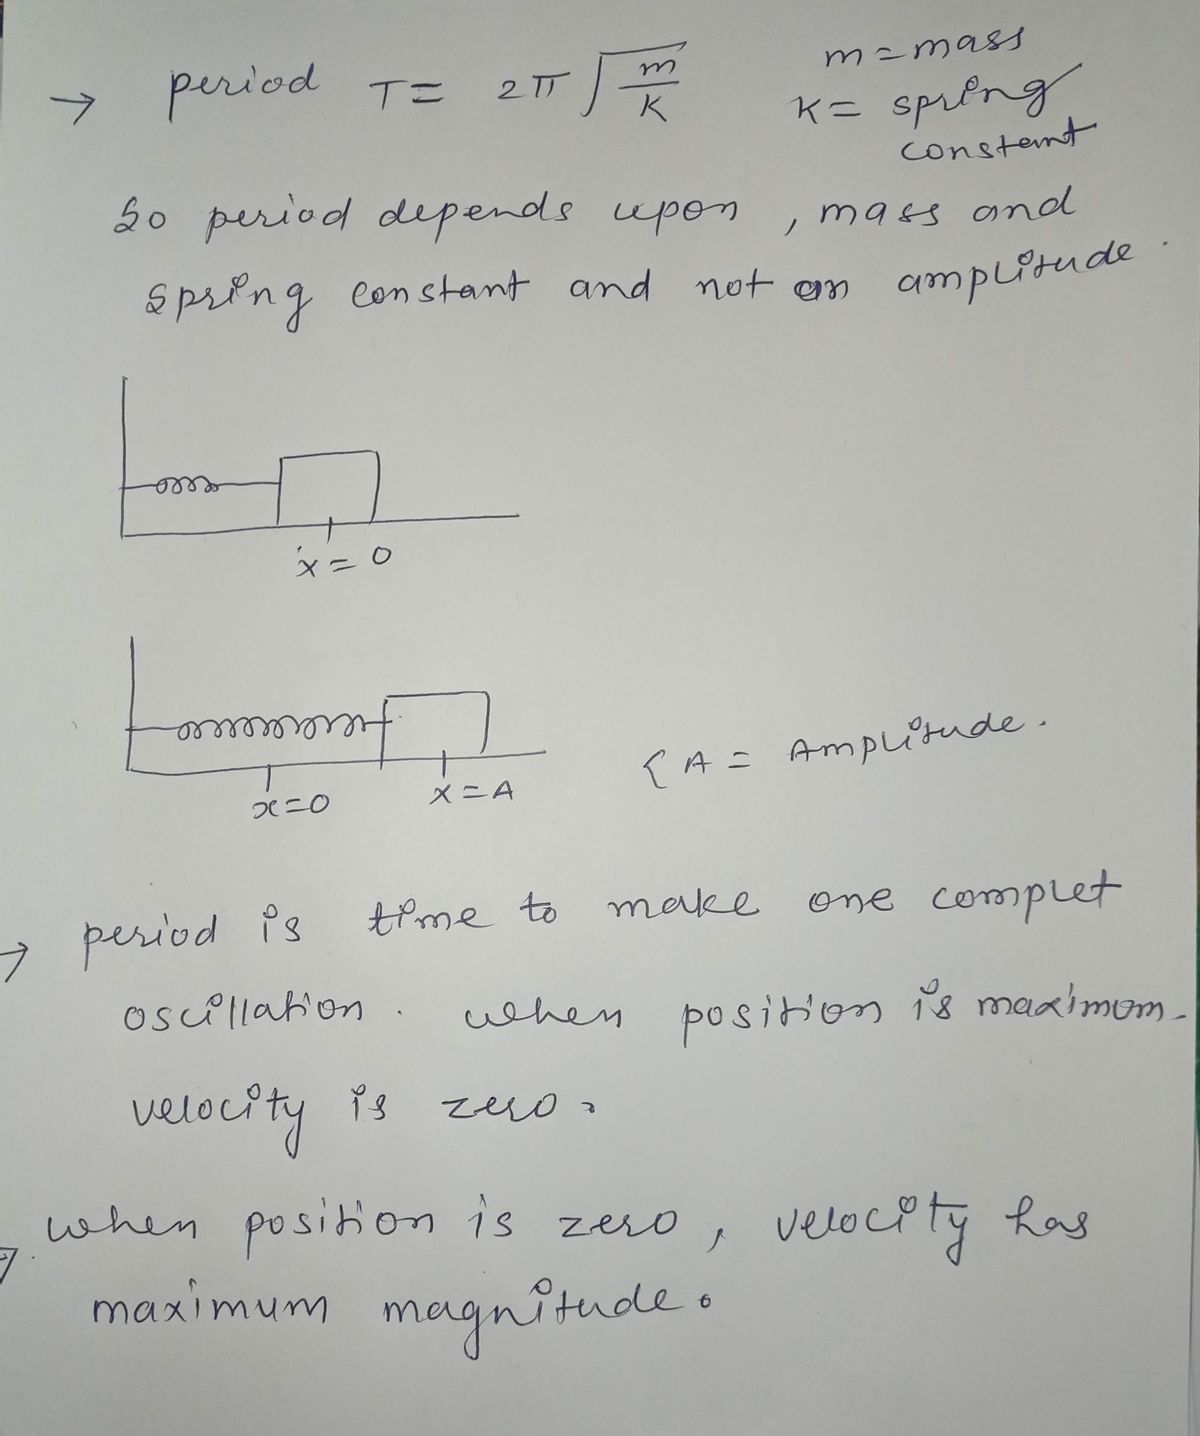 → period T = 2π √(m/K) m = mass
K = spring
constant
So period depends upon, mass and
spring constant and not on amplitude.
x = 0
x=0 x=A { A = Amplitude.
→ period is time to make one complet
oscillation. when position is maximum.
velocity is zero.
→ when position is zero, velocity has
maximum magnitude.